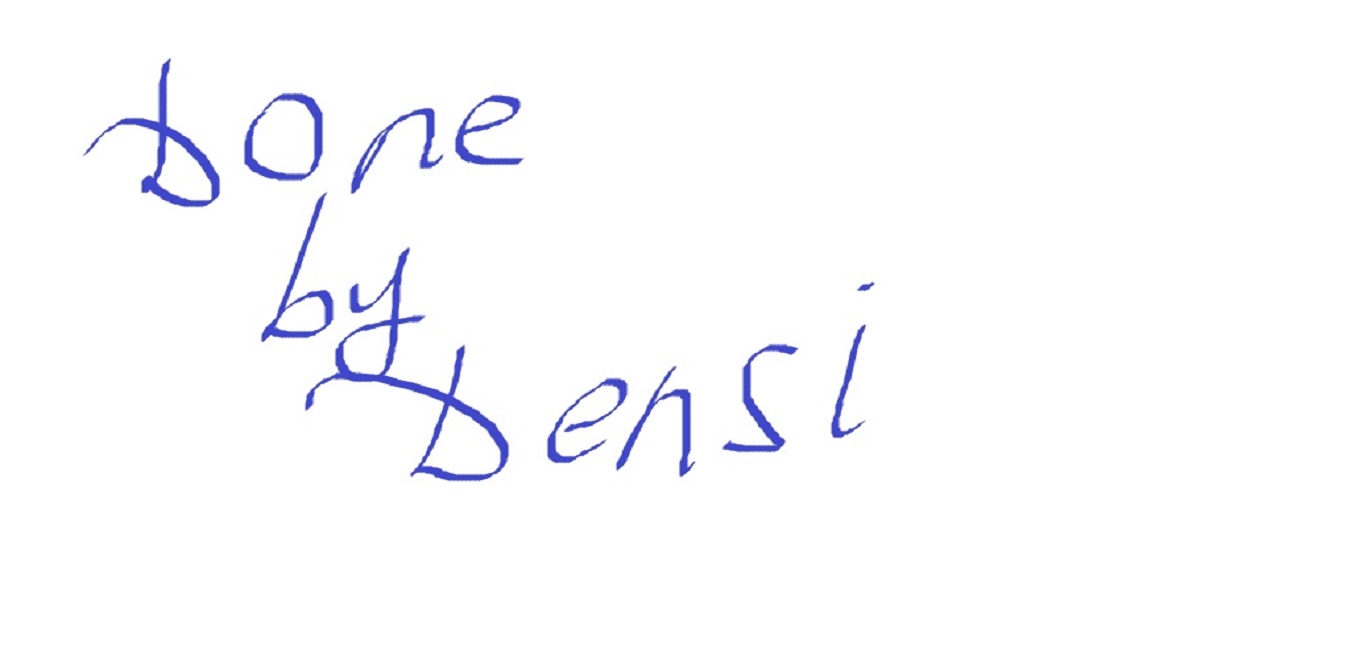 Done
by
Densi